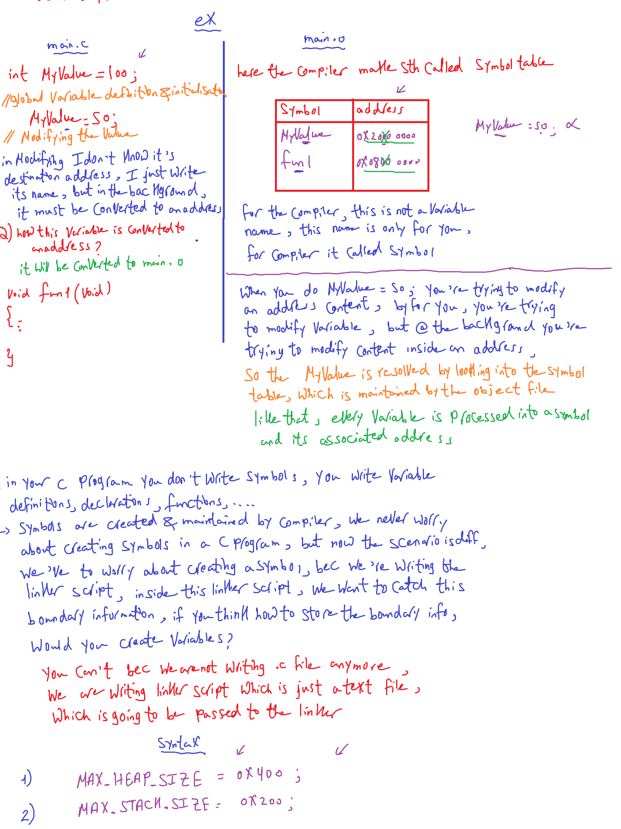 ex
main.c
int MyValue = 100 ;
//global Variable definition & initialisation
MyValue = 50 ;
// Modifying the Value
in Modifying I don't know it's
destination address, I just write
its name, but in the background,
it must be Converted to an address,
2) how this Variable is converted to
an address ?
it will be converted to main.o
void fun1 (void)
{
}
main.o
here the Compiler make sth Called Symbol table
Symbol address
MyValue 0x2000 0000
fun1 0x0800 0000
MyValue = 50 ;
for the Compiler, this is not a Variable
name, this name is only for you,
for Compiler it Called Symbol
When you do MyValue = 50 ; you're trying to modify
an address Content, by for you, you're trying
to modify Variable, but @ the background you're
trying to modify content inside an address,
So the MyValue is resolved by looking into the symbol
table, which is maintained by the object file
like that, every Variable is processed into a symbol
and its associated address,
in your C program you don't write symbols, you write Variable
definitions, declarations, functions, ....
→ Symbols are created & maintained by compiler, we never worry
about creating symbols in a C program, but now the scenario is diff,
we've to worry about creating a symbol, bec we're writing the
linker script, inside this linker script, we want to Catch this
boundary information, if you think how to store the boundary info,
Would you create Variables?
You Can't bec we are not writing .c file anymore,
we are writing linker script which is just a text file,
which is going to be passed to the linker
Syntax
1) MAX_HEAP_SIZE = 0x400 ;
2) MAX_STACK_SIZE = 0x200 ;